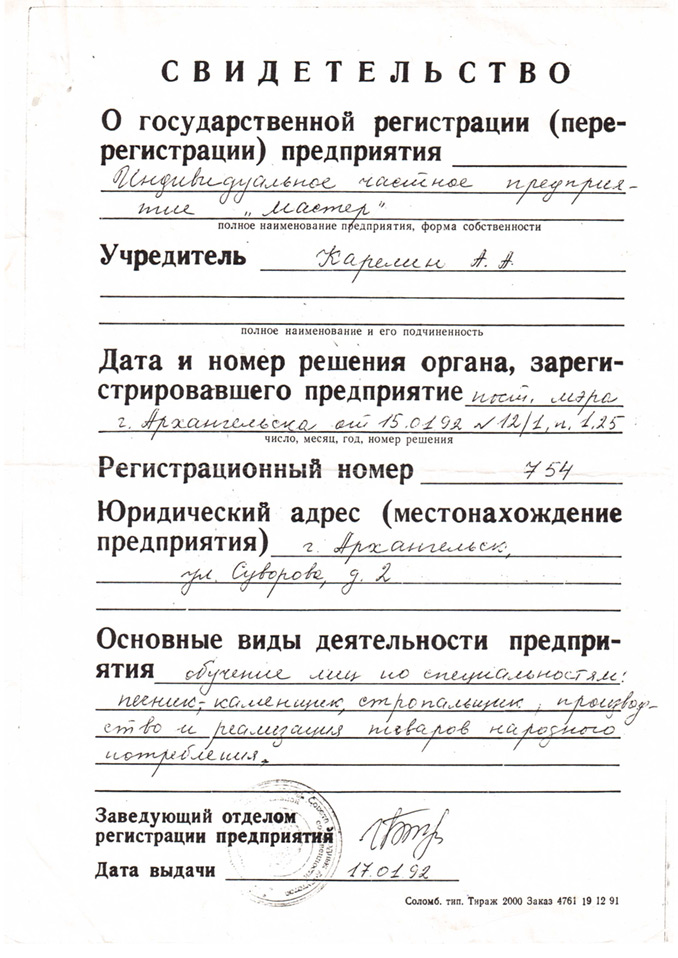 СВИДЕТЕЛЬСТВО
О государственной регистрации (пере-
регистрации) предприятия
Индивидуальное частное предприя-
тие „Мастер"
полное наименование предприятия, форма собственности
Учредитель Карелин А. А.
полное наименование и его подчиненность
Дата и номер решения органа, зареги-
стрировавшего предприятие пост. мэра
г. Архангельска от 15.01.92 №12/1, п. 1.25
число, месяц, год, номер решения
Регистрационный номер 754
Юридический адрес (местонахождение
предприятия) г. Архангельск,
ул. Суворова, д. 2
Основные виды деятельности предпри-
ятия обучение лиц по специальностям:
печник, каменщик, стропальщик, производ-
ство и реализация товаров народного
потребления.
Заведующий отделом
регистрации предприятий
Дата выдачи 17.01.92
Соломб. тип. Тираж 2000 Заказ 4761 19 12 91